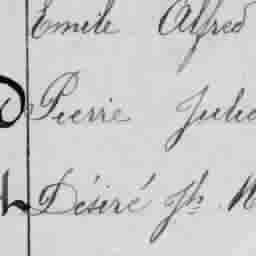 Emile Alfred
Pierre Jules
Désiré Jh